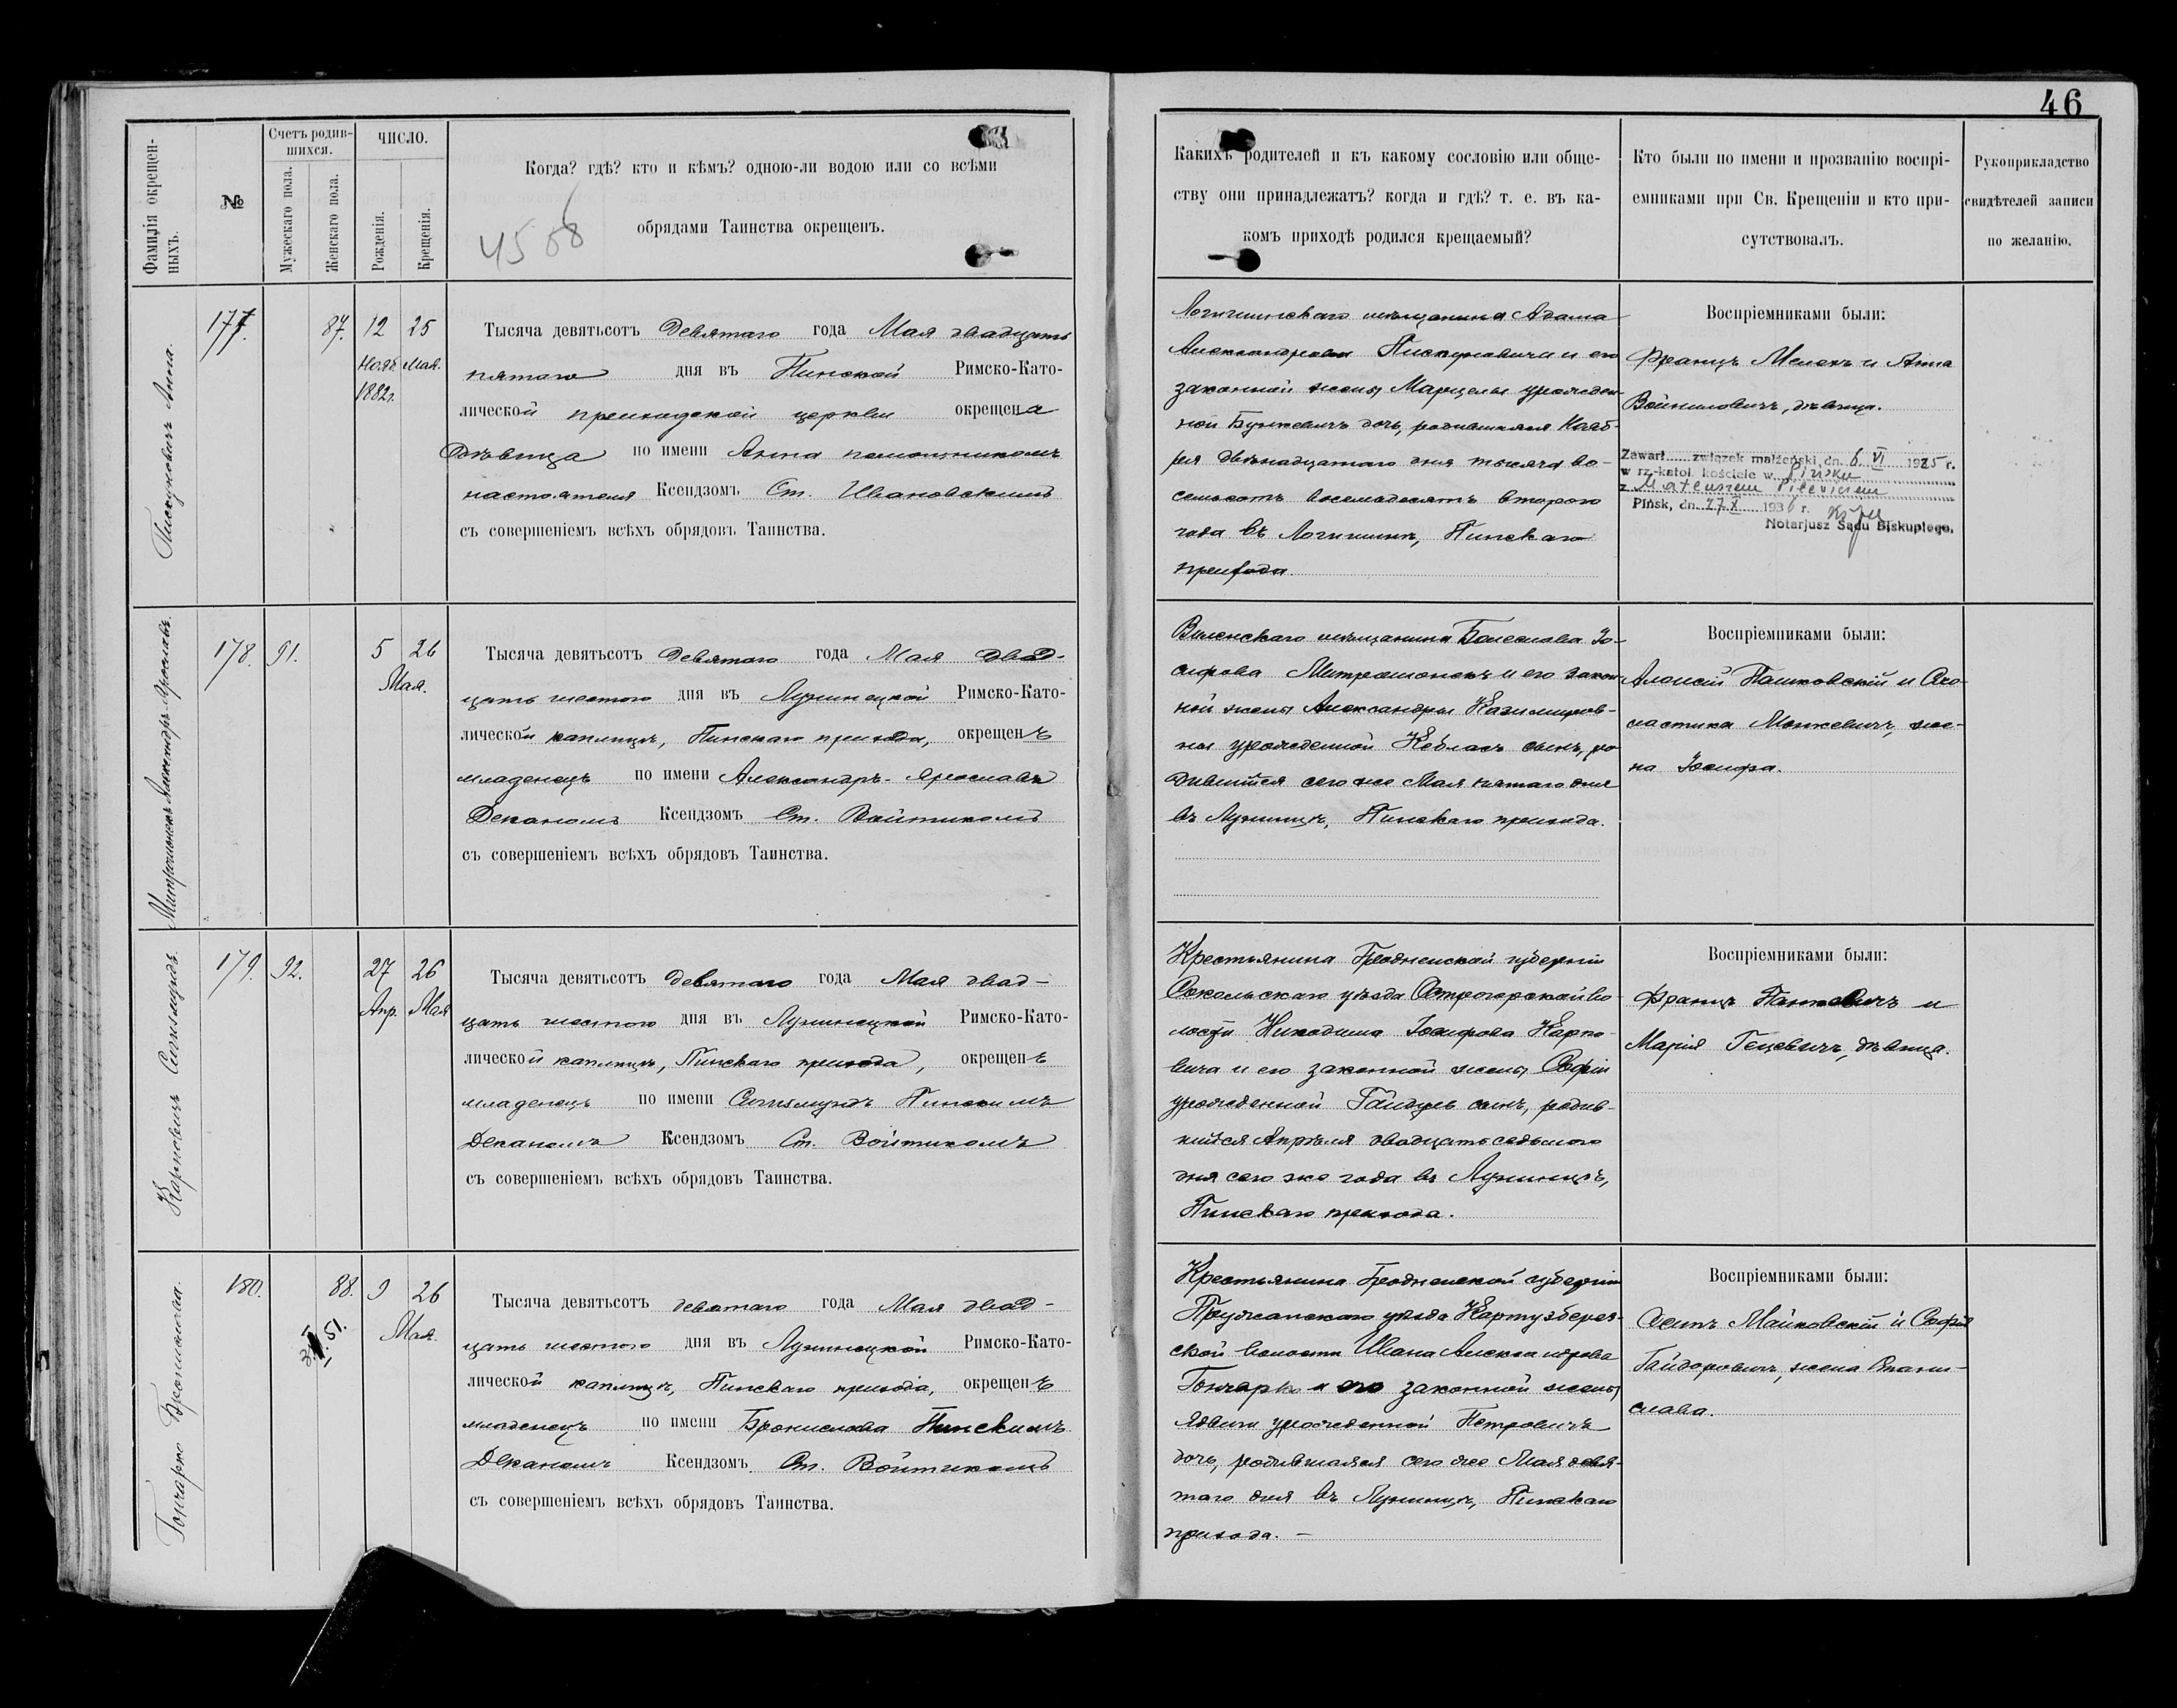 46
Фамилія окрещен-
ныхъ.
№
Счетъ родив-
шихся.
Мужескаго пола.
Женскаго пола.
ЧИСЛО.
Рожденія.
Крещенія.
Когда? гдѣ? кто и кѣмъ? одною-ли водою или со всѣми
обрядами Таинства окрещенъ.
Какихъ родителей и къ какому сословію или обще-
ству они принадлежатъ? когда и гдѣ? т. е. въ ка-
комъ приходѣ родился крещаемый?
Кто были по имени и прозванію воспрі-
емниками при Св. Крещеніи и кто при-
сутствовалъ.
Рукоприкладство
свидѣтелей записи
по желанію.
Пискуновичъ Анна.
177.
87.
12 25
Нояб. Мая.
1882 г.
Тысяча девятьсотъ девятаго года Мая двадцать
пятаго дня въ Пинской Римско-Като-
лической приходской церкви окрещена
дѣвица по имени Анна помощникомъ
настоятеля Ксендзомъ Ст. Ивановскимъ
съ совершеніемъ всѣхъ обрядовъ Таинства.
Логишинскаго мѣщанина Адама
Александрова Пискуновича и его
законной жены Марцелы урожден-
ной Бункевичъ дочь, родившаяся Нояб-
ря двѣнадцатаго дня тысяча во-
семьсотъ восемьдесятъ второго
года въ Логишинѣ, Пинскаго
прихода.
Воспріемниками были:
Францъ Мелехъ и Анна
Войниловичъ, дѣвица.
Zawarł związek małżeński dn. 6 VI 1925 r.
w rz.-katol. kościele w Pińsku
z Mateuszem Pilewiczem
Pińsk, dn. 27 X 1936 r.
Notarjusz Sądu Biskupiego.
Митрошонокъ Александръ-Ярославъ.
178.
91.
5 26
Мая.
Тысяча девятьсотъ девятаго года Мая двад-
цать шестого дня въ Лунинецкой Римско-Като-
лической каплицѣ, Пинскаго прихода, окрещенъ
младенецъ по имени Александръ-Ярославъ
Деканомъ Ксендзомъ Ст. Войтикомъ
съ совершеніемъ всѣхъ обрядовъ Таинства.
Виленскаго мѣщанина Болеслава Іо-
сифова Митрошонокъ и его закон-
ной жены Александры Казимиров-
ны урожденной Кебласъ сынъ, ро-
дившійся сего же Мая пятаго дня
въ Лунинцѣ, Пинскаго прихода.
Воспріемниками были:
Алоисій Пашковскій и Схо-
ластика Монкевичъ, же-
на Іосифа.
Карповичъ Сигизмундъ.
179.
92.
27 26
Апр. Мая
Тысяча девятьсотъ девятаго года Мая двад-
цать шестого дня въ Лунинецкой Римско-Като-
лической каплицѣ, Пинскаго прихода, окрещенъ
младенецъ по имени Сигизмундъ Пинскимъ
Деканомъ Ксендзомъ Ст. Войтикомъ
съ совершеніемъ всѣхъ обрядовъ Таинства.
Крестьянина Гродненской губерніи
Сокольскаго уѣзда Острогорской во-
лости Никодима Іосифова Карпо-
вича и его законной жены Софіи
урожденной сынъ, родив-
шійся Апрѣля двадцать седьмого
дня сего же года въ Лунинцѣ,
Пинскаго прихода.
Воспріемниками были:
Францъ Панкевичъ и
Марія Гецевичъ, дѣвица.
Гончарко Бронислава.
180.
88.
9 26
Мая.
Тысяча девятьсотъ девятаго года Мая двад-
цать шестого дня въ Лунинецкой Римско-Като-
лической каплицѣ, Пинскаго прихода, окрещенъ
младенецъ по имени Бронислава Пинскимъ
Деканомъ Ксендзомъ Ст. Войтикомъ
съ совершеніемъ всѣхъ обрядовъ Таинства.
Крестьянина Гродненской губерніи
Пружанскаго уѣзда Картузберез-
ской волости Ивана Александрова
Гончарко и его законной жены
Ядвиги урожденной Петровичъ
дочь, родившаяся сего же Мая девя-
таго дня въ Лунинцѣ, Пинскаго
прихода. —
Воспріемниками были:
Осипъ Майковскій и Софія
Гайдоровичъ, жена Стани-
слава.